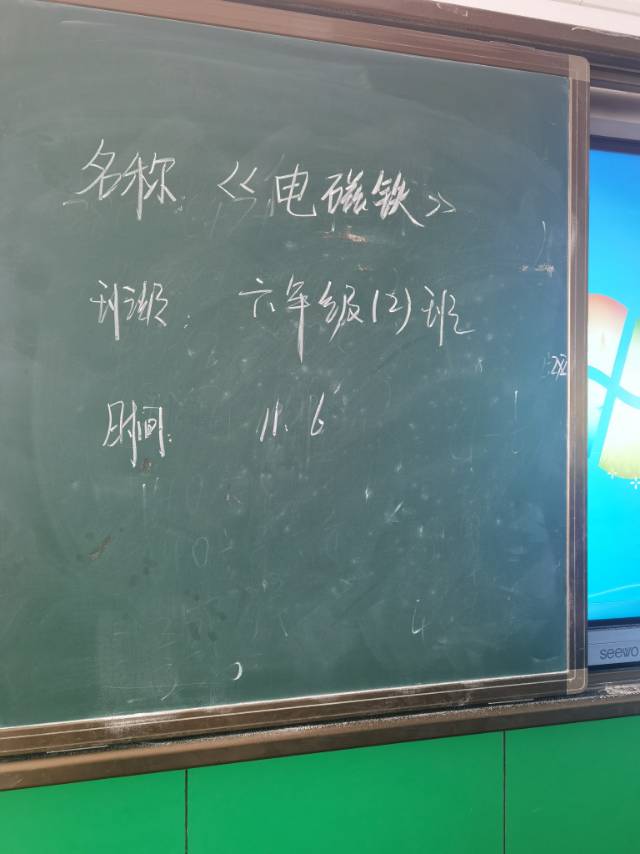 名称 《电磁铁》
班级: 六年级(2)班
时间: 11.6
seewo